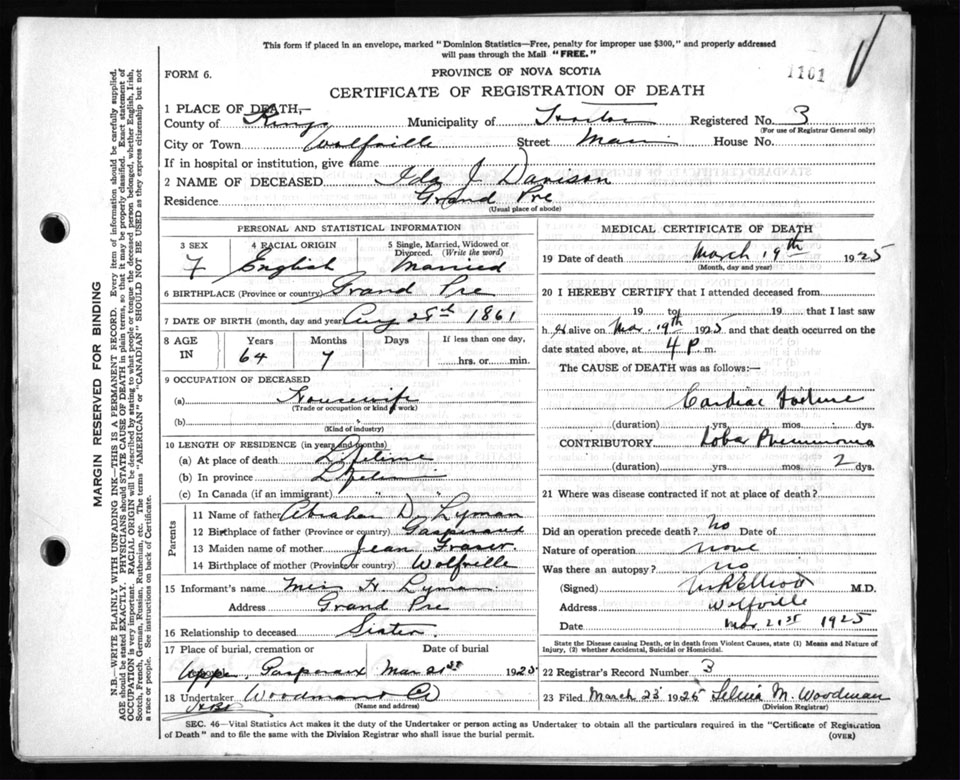 This form if placed in an envelope, marked "Dominion Statistics—Free, penalty for improper use $300," and properly addressed
will pass through the Mail "FREE."
FORM 6.
PROVINCE OF NOVA SCOTIA
1101
CERTIFICATE OF REGISTRATION OF DEATH
1 PLACE OF DEATH,—
County of Kings Municipality of Horton Registered No. 3
(For use of Registrar General only)
City or Town Wolfville Street Main House No.
If in hospital or institution, give name
2 NAME OF DECEASED Ida J Davison
Residence Grand Pre
(Usual place of abode)
PERSONAL AND STATISTICAL INFORMATION
3 SEX 4 RACIAL ORIGIN 5 Single, Married, Widowed or
Divorced. (Write the word)
F English Married
6 BIRTHPLACE (Province or country) Grand Pre
7 DATE OF BIRTH (month, day and year) Aug 28th 1861
8 AGE IN Years Months Days If less than one day,
64 7 hrs. or min.
9 OCCUPATION OF DECEASED
(a) Housewife
(Trade or occupation or kind of work)
(b)
(Kind of industry)
10 LENGTH OF RESIDENCE (in years and months)
(a) At place of death Lifetime
(b) In province Lifetime
(c) In Canada (if an immigrant) " "
Parents
11 Name of father Abraham D. Lyman
12 Birthplace of father (Province or country) Gaspereau
13 Maiden name of mother Jean Fraser.
14 Birthplace of mother (Province or country) Wolfville
15 Informant's name H Lyman
Address Grand Pre
16 Relationship to deceased Sister.
17 Place of burial, cremation or Date of burial
Upper Gaspereau Mar 21st 1925
18 Undertaker Woodmans Co
(Name and address)
MEDICAL CERTIFICATE OF DEATH
19 Date of death March 19th 1925
(Month, day and year)
20 I HEREBY CERTIFY that I attended deceased from
19 to 19 that I last saw
h er alive on Mar. 19th 1925 and that death occurred on
date stated above, at 4 P. m.
The CAUSE of DEATH was as follows:—
Cardiac Failure
(duration) yrs. mos. dys.
CONTRIBUTORY Lobar Pneumonia
(duration) yrs. mos. 2 dys.
21 Where was disease contracted if not at place of death?
Did an operation precede death? no Date of
Nature of operation none
Was there an autopsy? no
(Signed) Elliott M.D.
Address Wolfville
Date Mar 21st 1925
State the Disease causing Death, or in death from Violent Causes, state (1) Means and Nature of
Injury, (2) whether Accidental, Suicidal or Homicidal.
22 Registrar's Record Number 3
23 Filed March 23 1925 M. Woodman
(Division Registrar)
SEC. 46—Vital Statistics Act makes it the duty of the Undertaker or person acting as Undertaker to obtain all the particulars required in the "Certificate of Registration
of Death" and to file the same with the Division Registrar who shall issue the burial permit.
(OVER)
MARGIN RESERVED FOR BINDING
N.B.—WRITE PLAINLY WITH UNFADING INK—THIS IS A PERMANENT RECORD. Every item of information should be carefully supplied.
AGE should be stated EXACTLY. PHYSICIANS should STATE CAUSE OF DEATH in plain terms, so that it may be properly classified. Exact statement of
OCCUPATION is very important. RACIAL ORIGIN will be described by stating to what people or tongue the deceased person belonged, whether English, Irish,
Scotch, French, German, Russian, Ruthenian, etc. The terms "AMERICAN" or "CANADIAN" SHOULD NOT BE USED as they express citizenship but not
a race or people. See instructions on back of Certificate.